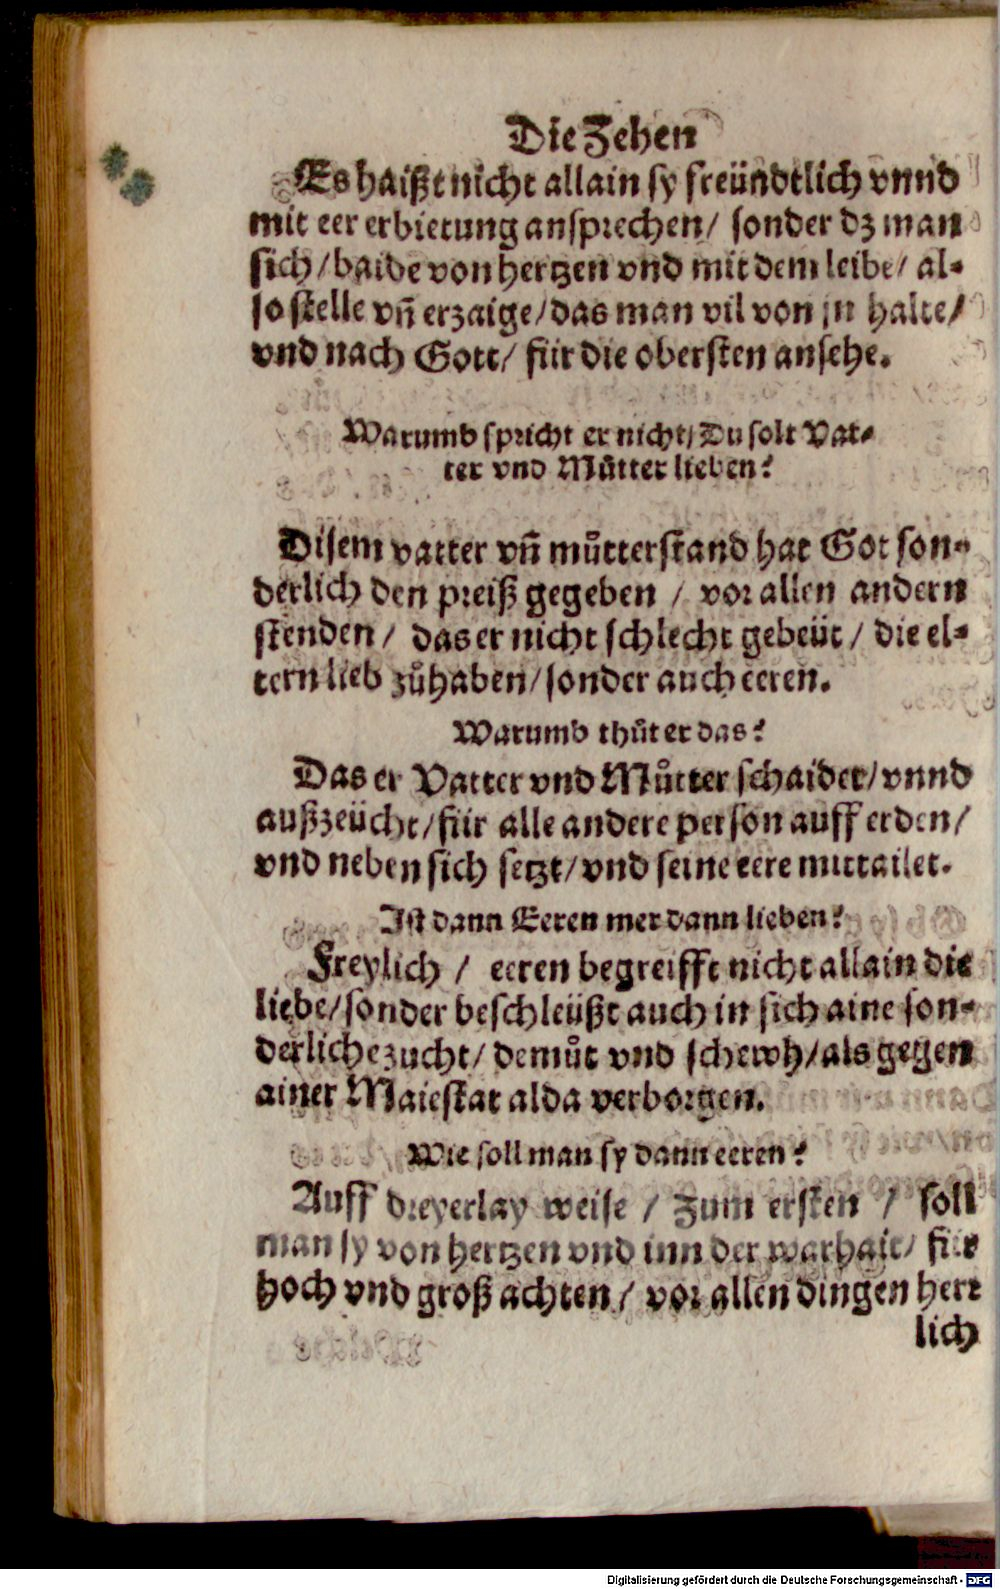 Die Zehen
Es haißt nicht allain sy freündtlich vnnd
mit eer erbietung ansprechen/ sonder dz man
sich/ baide von hertzen vnd mit dem leibe/ al-
so stelle vñ erzaige/ das man vil von jn halte/
vnd nach Gott/ für die obersten ansehe.
Warumb spricht er nicht/ Du solt Vat-
ter vnd Můtter lieben?
Disem vatter vñ můtterstand hat Got son-
derlich den preiß gegeben / vor allen andern
stenden / das er nicht schlecht gebeüt / die el-
tern lieb zůhaben/ sonder auch eeren.
Warumb thůt er das?
Das er Vatter vnd Můtter schaidet/ vnnd
außzeücht/ für alle andere person auff erden/
vnd neben sich setzt/ vnd seine eere mittailet.
Ist dann Eeren mer dann lieben?
Freylich / eeren begreifft nicht allain die
liebe/ sonder beschleüßt auch in sich aine son-
derliche zucht/ demůt vnd schewh/ als gegen
ainer Maiestat alda verborgen.
Wie soll man sy dann eeren?
Auff dreyerlay weise / Zum ersten / soll
man sy von hertzen vnd inn der warhait/ für
hoch vnd groß achten / vor allen dingen herr
lich
Digitalisierung gefördert durch die Deutsche Forschungsgemeinschaft - DFG